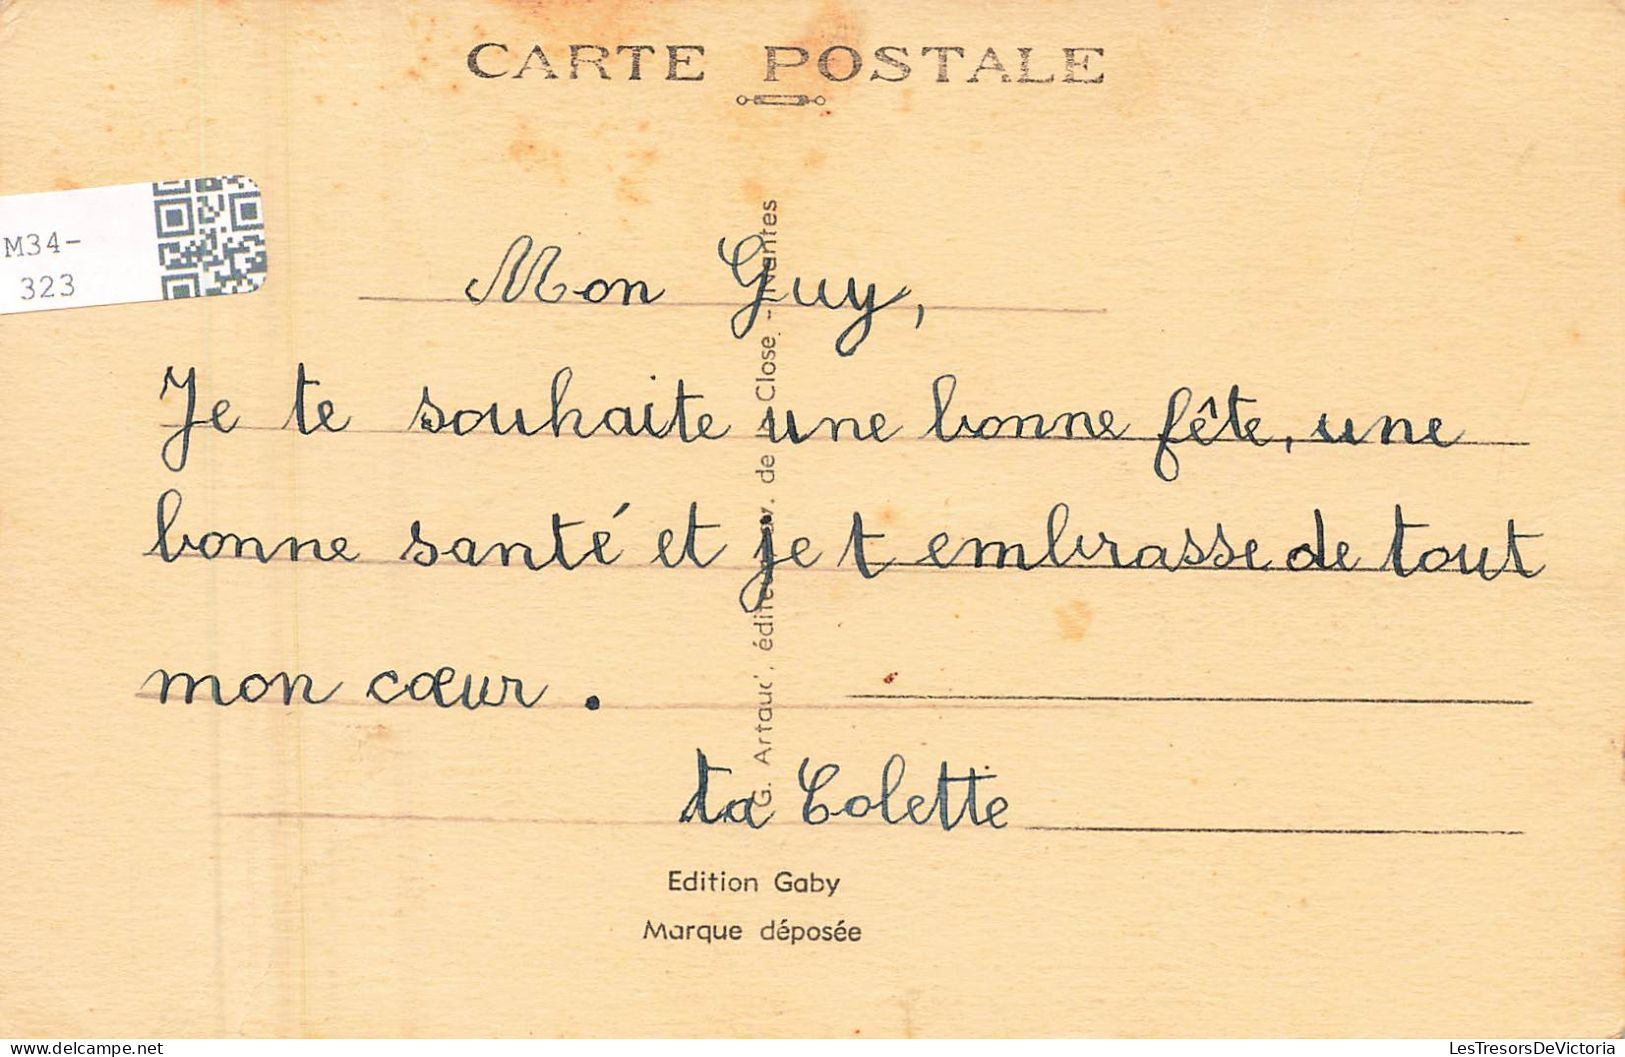 CARTE POSTALE
M34-
323
Mon Guy,
Je te souhaite une bonne fête, une
bonne santé et je t embrasse de tout
mon cœur .
ta Colette
G. Artaud, de Close - Nantes
Edition Gaby
Marque déposée
LesTresorsDeVictoria